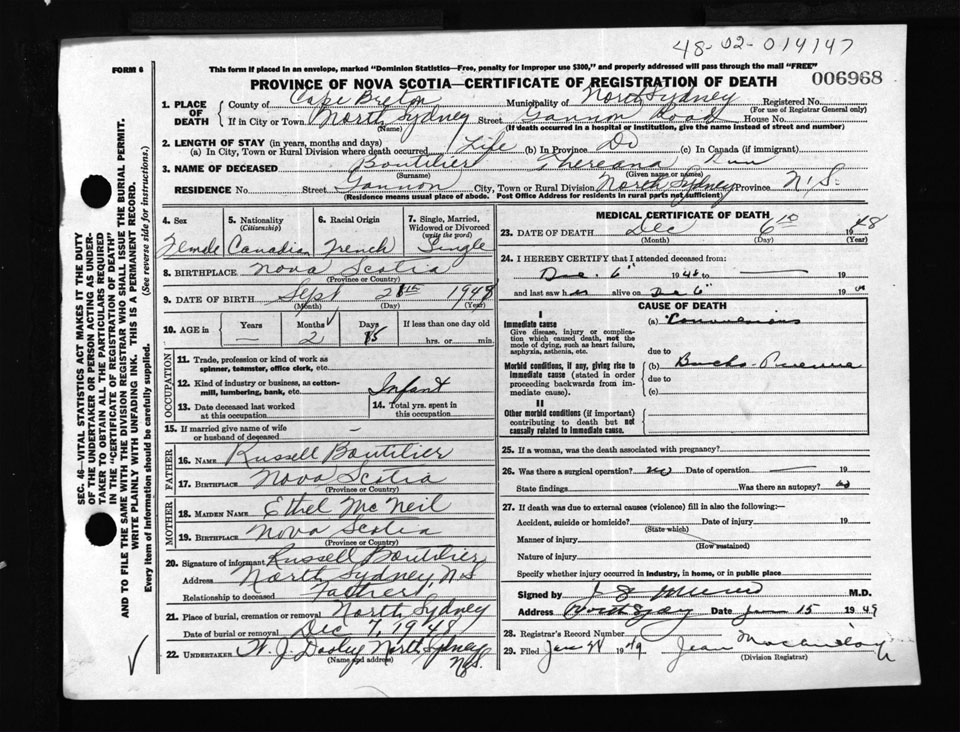 48-02-014147
FORM 6
This form if placed in an envelope, marked "Dominion Statistics—Free, penalty for improper use $300," and properly addressed will pass through the mail "FREE"
PROVINCE OF NOVA SCOTIA—CERTIFICATE OF REGISTRATION OF DEATH
006968
1. PLACE OF DEATH
County of Cape Breton Municipality of North Sydney Registered No.
(For use of Registrar General only)
If in City or Town North Sydney Street Gannon Road House No.
(Name) (If death occurred in a hospital or institution, give the name instead of street and number)
2. LENGTH OF STAY (in years, months and days)
(a) In City, Town or Rural Division where death occurred Life (b) In Province Do (c) In Canada (if immigrant)
3. NAME OF DECEASED Boutilier Ann
(Surname) (Given name or names)
RESIDENCE No. Street Gannon City, Town or Rural Division North Sydney Province N.S.
(Residence means usual place of abode. Post Office Address for residents in rural parts not sufficient)
SEC. 46—VITAL STATISTICS ACT MAKES IT THE DUTY
OF THE UNDERTAKER OR PERSON ACTING AS UNDER-
TAKER TO OBTAIN ALL THE PARTICULARS REQUIRED
IN THE "CERTIFICATE OF REGISTRATION OF DEATH"
AND TO FILE THE SAME WITH THE DIVISION REGISTRAR WHO SHALL ISSUE THE BURIAL PERMIT.
WRITE PLAINLY WITH UNFADING INK. THIS IS A PERMANENT RECORD.
Every item of information should be carefully supplied. (See reverse side for instructions.)
4. Sex
Female
5. Nationality
(Citizenship)
Canadian
6. Racial Origin
French
7. Single, Married,
Widowed or Divorced
(write the word)
Single
8. BIRTHPLACE Nova Scotia
(Province or Country)
9. DATE OF BIRTH Sept 1948
(Month) (Day) (Year)
10. AGE in Years Months Days If less than one day old
— 2 15 hrs. or min.
OCCUPATION
11. Trade, profession or kind of work as
spinner, teamster, office clerk, etc.
12. Kind of industry or business, as cotton-
mill, lumbering, bank, etc. Infant
13. Date deceased last worked
at this occupation
14. Total yrs. spent in
this occupation
15. If married give name of wife
or husband of deceased —
FATHER
16. NAME Russell Boutilier
17. BIRTHPLACE Nova Scotia
(Province or Country)
MOTHER
18. MAIDEN NAME Ethel McNeil
19. BIRTHPLACE Nova Scotia
(Province or Country)
20. Signature of informant Russell Boutilier
Address North Sydney, N.S
Relationship to deceased Father
21. Place of burial, cremation or removal North Sydney
Date of burial or removal Dec 7, 1948
22. UNDERTAKER W. J. Dooley North Sydney
N.S.
(Name and address)
MEDICAL CERTIFICATE OF DEATH
23. DATE OF DEATH Dec 6th 1948
(Month) (Day) (Year)
24. I HEREBY CERTIFY that I attended deceased from:
Dec. 6" 1948 to — 19
and last saw her alive on Dec 6" 19
CAUSE OF DEATH
I
Immediate cause
Give disease, injury or complica-
tion which caused death, not the
mode of dying, such as heart failure,
asphyxia, asthenia, etc.
(a) Convulsions
due to
Morbid conditions, if any, giving rise to
immediate cause (stated in order
proceeding backwards from im-
mediate cause).
(b) Broncho-
due to
(c)
II
Other morbid conditions (if important)
contributing to death but not
causally related to immediate cause.
25. If a woman, was the death associated with pregnancy?
26. Was there a surgical operation? no Date of operation — 19
State findings Was there an autopsy? no
27. If death was due to external causes (violence) fill in also the following:—
Accident, suicide or homicide? Date of injury 19
(State which)
Manner of injury
(How sustained)
Nature of injury
Specify whether injury occurred in industry, in home, or in public place
Signed by M.D.
Address North Sydney Date Jan 15 1949
28. Registrar's Record Number
29. Filed Jan 1949 Jean
(Division Registrar)